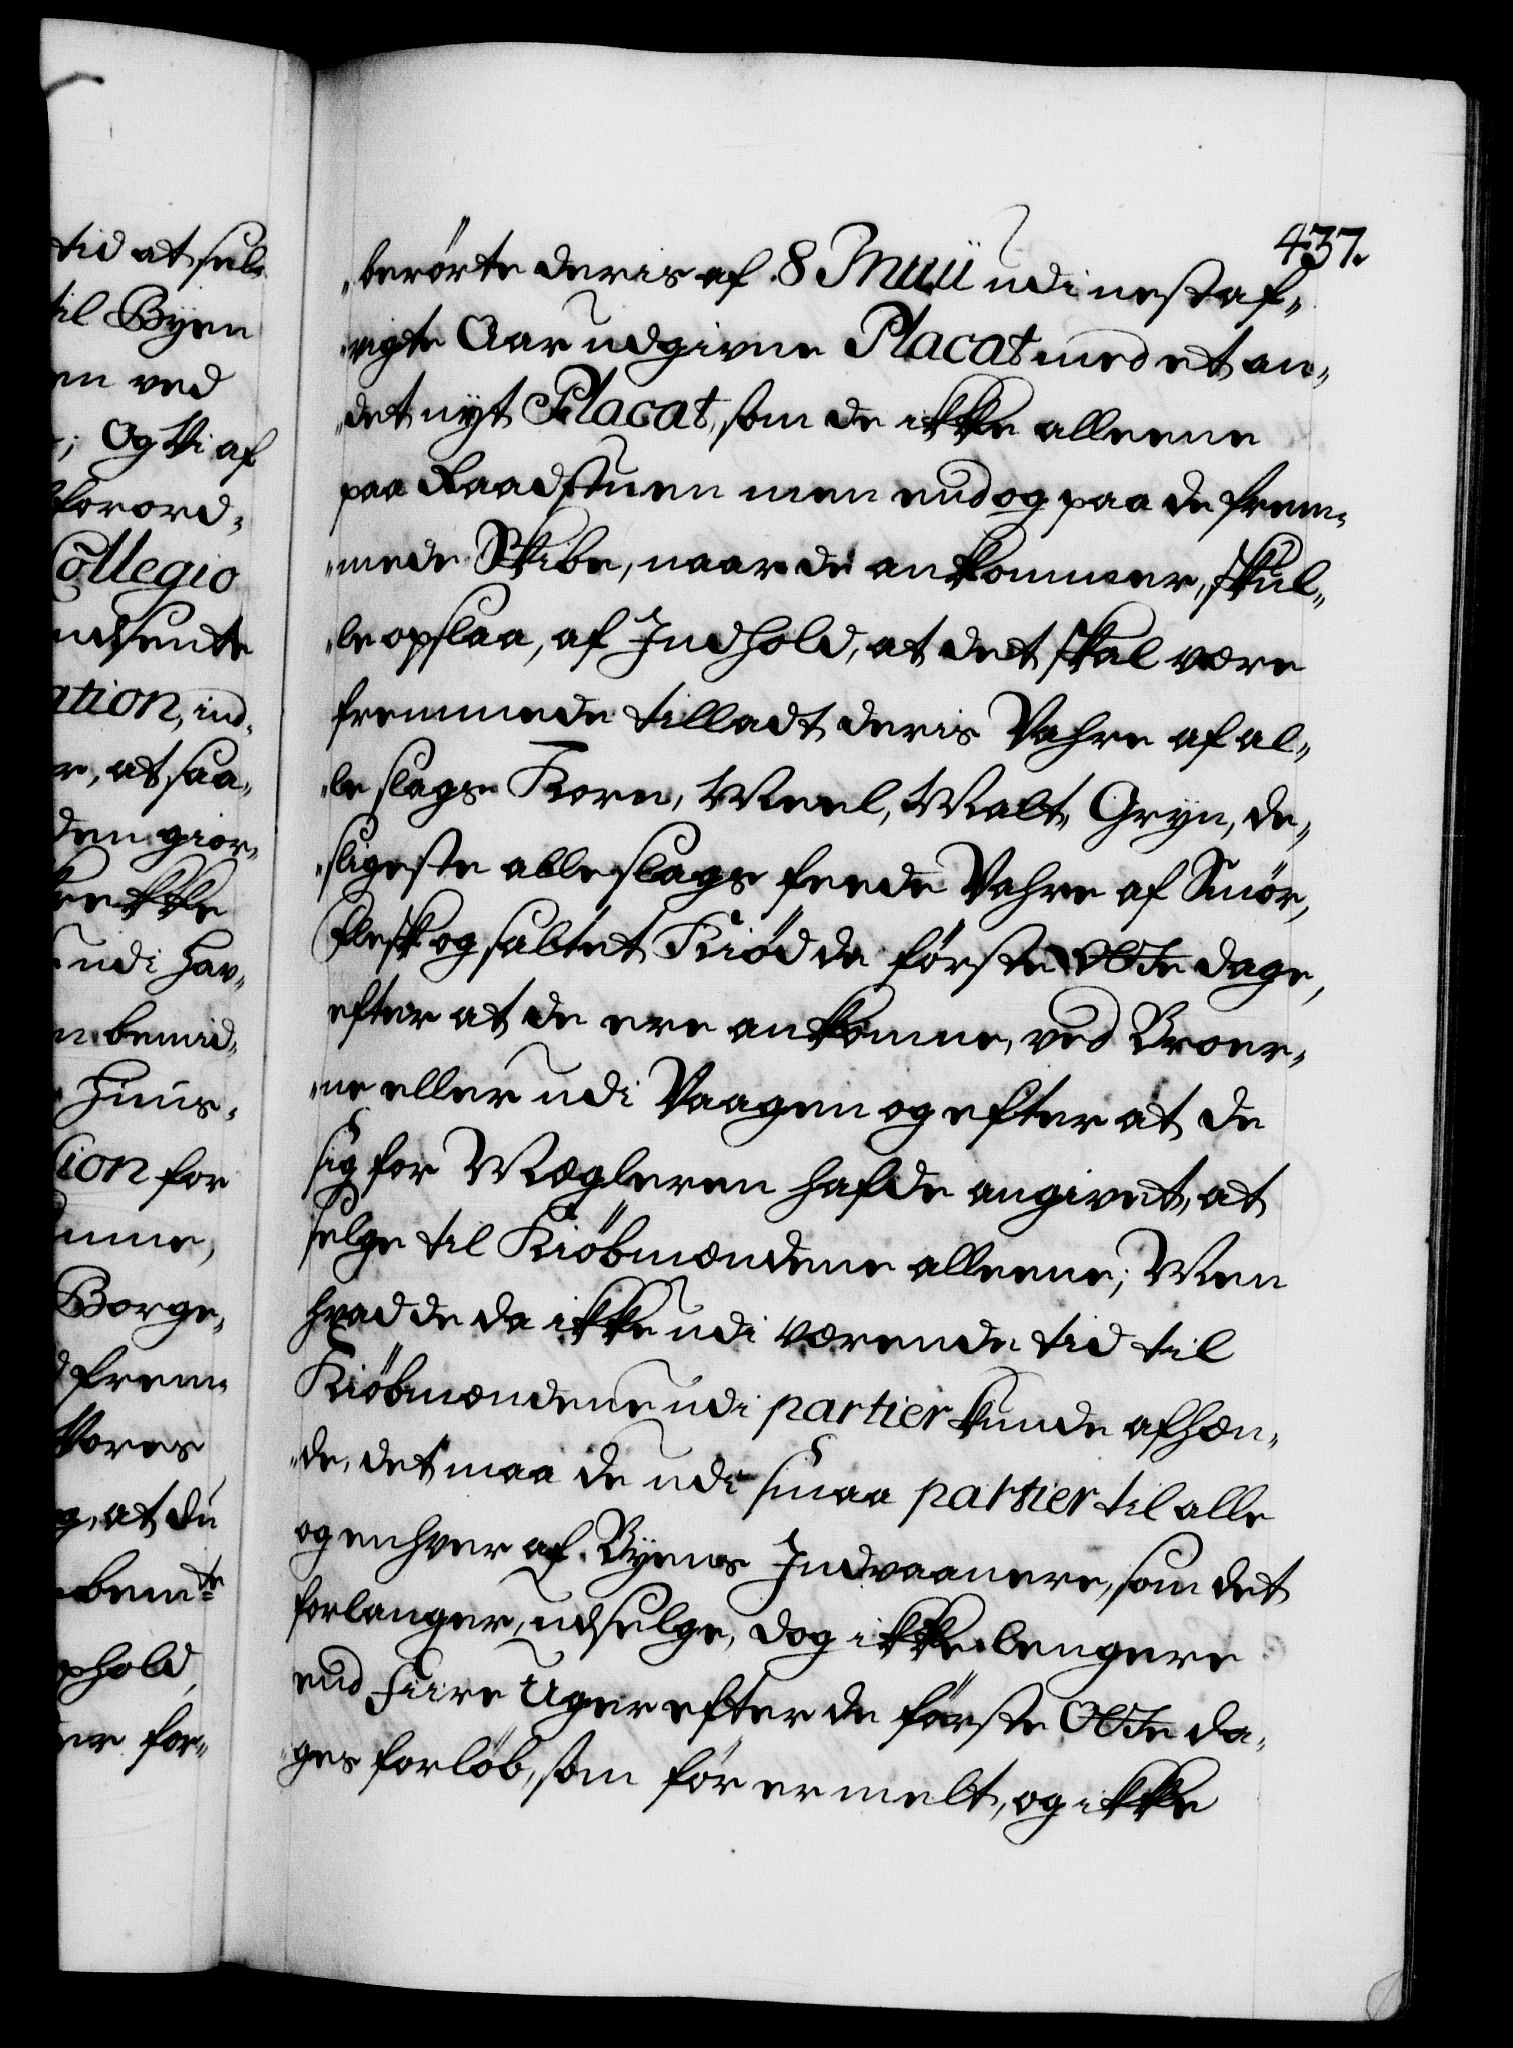 tid at sel¬
til Byen
en ved
; Og Vi af
forord¬
Collegio
udsendte
ation, ind¬
r, at saa¬
den gior¬
ikke
udi Hav¬
n bemid¬
Huus¬
tion for
Borge¬
frem¬
Vores
g, at du
bem.te
phold,
er for¬
437.
berörte deris af 8 Maii udi nest af¬
vigte Aar udgivne Placat med et an¬
det nyt Placat, som de ikke alleene
paa Raadstuen men endog paa de frem¬
mede Skibe, naar de ankommer, skul¬
le opslaa, af Indhold, at det skal være
fremmede tilladt deris Vahre af al¬
le slags Korn, Meel, Malt, Gryn, de¬
sligeste alle slags feede Vahre af Smör,
Flesk og saltet Kiöd de förste Otte dage,
efter at de ere ankomne, ved Broer¬
ne eller udi Vaagen og efter at de
sig for Mægleren hafde angivet, at
selge til Kiöbmændene alleene; Men
hvad de da ikke udi værende tid til
Kiöbmændene udi partier kunde afhæn¬
de, det maa de udi smaa partier til alle
og enhver af Byens Indvaanere, som det
forlanger, udselge, dog ikke lengere
end Fiire Uger efter de förste Otte da¬
ges forlöb, som för er melt, og ikke